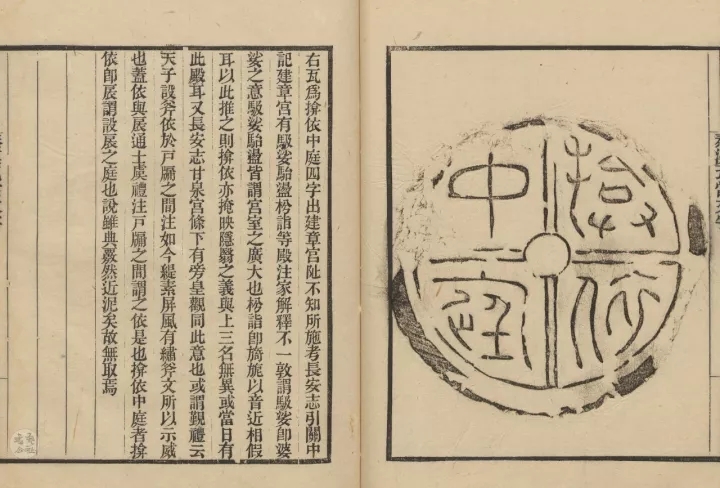 揜依
中庭
右瓦爲揜依中庭四字出建章宮阯不知所施考長安志引關中
記建章宮有馺娑駘盪枍詣等殿注家解釋不一敦謂馺娑卽婆
娑之意馺娑駘盪皆謂宮室之廣大也枍詣卽旖旎以音近相假
耳以此推之則揜依亦掩映隱翳之義與上三名無異或當日有
此殿耳又長安志甘泉宮條下有旁皇觀同此意也或謂覲禮云
天子設斧依於戶牖之間注如今綈素屏風有繡斧文所以示威
也蓋依與扆通士虞禮注戶牖之間謂之依是也揜依中庭者揜
依卽扆謂設扆之庭也說雖典覈然近泥矣故無取焉